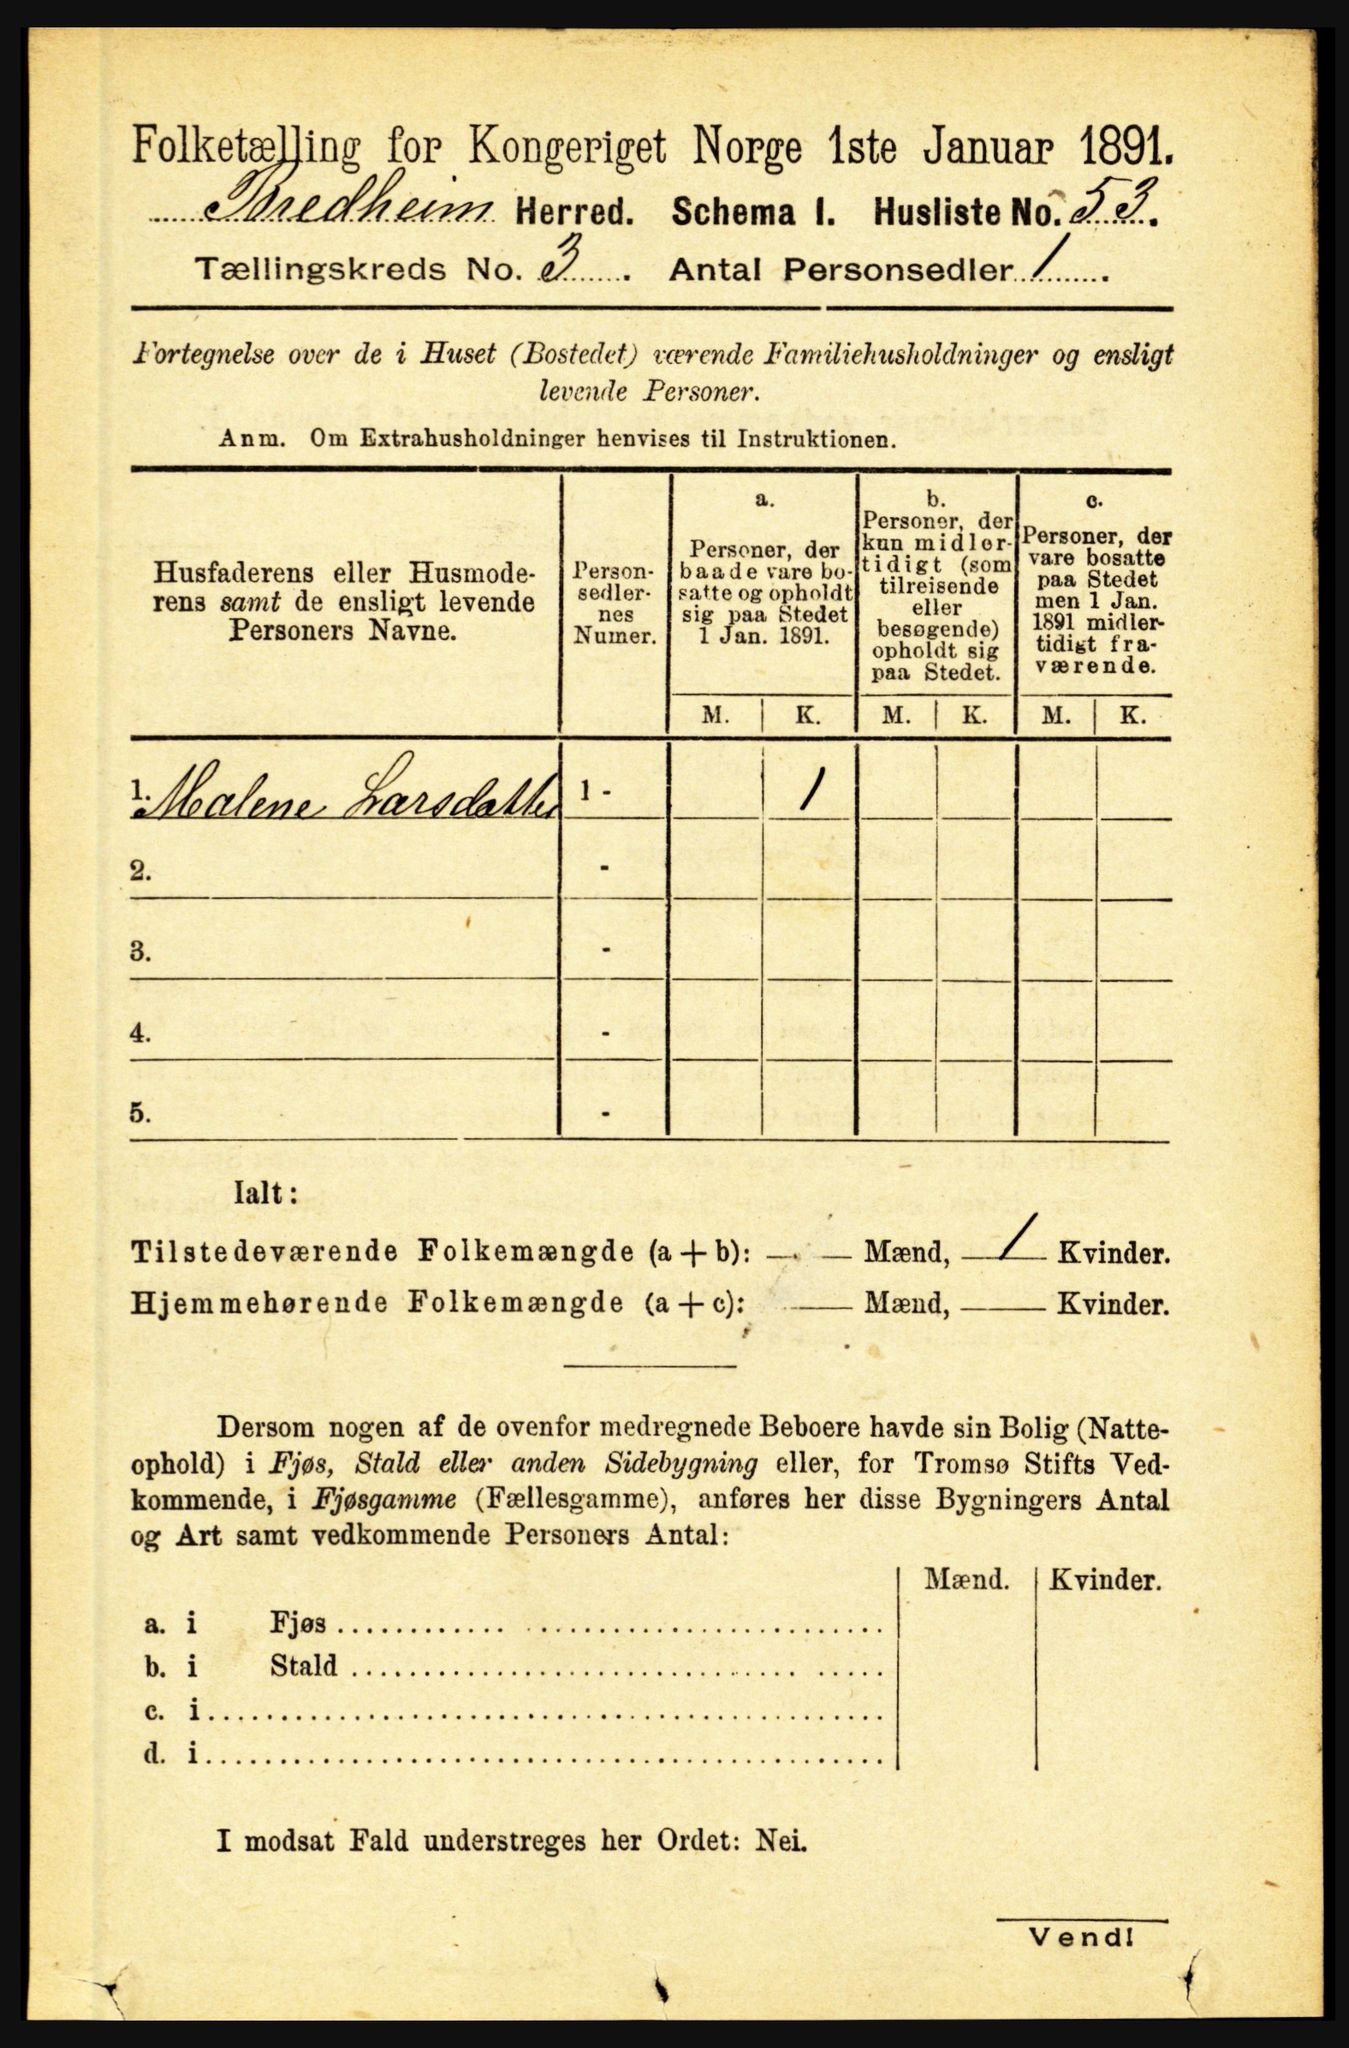 Folketælling for Kongeriget Norge 1ste Januar 1891.
Bredheim Herred. Schema I. Husliste No. 53.
Tællingskreds No. 3. Antal Personsedler 1.
Fortegnelse over de i Huset (Bostedet) værende Familiehusholdninger og ensligt
levende Personer.
Anm. Om Extrahusholdninger henvises til Instruktionen.
Husfaderens eller Husmode-
rens samt de ensligt levende
Personers Navne.
Person-
sedler-
nes
Numer.
a.
Personer, der
baade vare bo-
satte og opholdt
sig paa Stedet
1 Jan. 1891.
b.
Personer, der
kun midler-
tidigt (som
tilreisende
eller
besøgende)
opholdt sig
paa Stedet.
c.
Personer, der
vare bosatte
paa Stedet
men 1 Jan.
1891 midler-
tidigt fra-
værende.
M. K. M. K. M. K.
1. Malene Larsdatter 1 - 1
2. -
3. -
4. -
5. -
Ialt:
Tilstedeværende Folkemængde (a + b): — Mænd, 1 Kvinder.
Hjemmehørende Folkemængde (a + c): — Mænd, — Kvinder.
Dersom nogen af de ovenfor medregnede Beboere havde sin Bolig (Natte-
ophold) i Fjøs, Stald eller anden Sidebygning eller, for Tromsø Stifts Ved-
kommende, i Fjøsgamme (Fællesgamme), anføres her disse Bygningers Antal
og Art samt vedkommende Personers Antal:
Mænd. Kvinder.
a. i Fjøs
b. i Stald
c. i
d. i
I modsat Fald understreges her Ordet: Nei.
Vend!